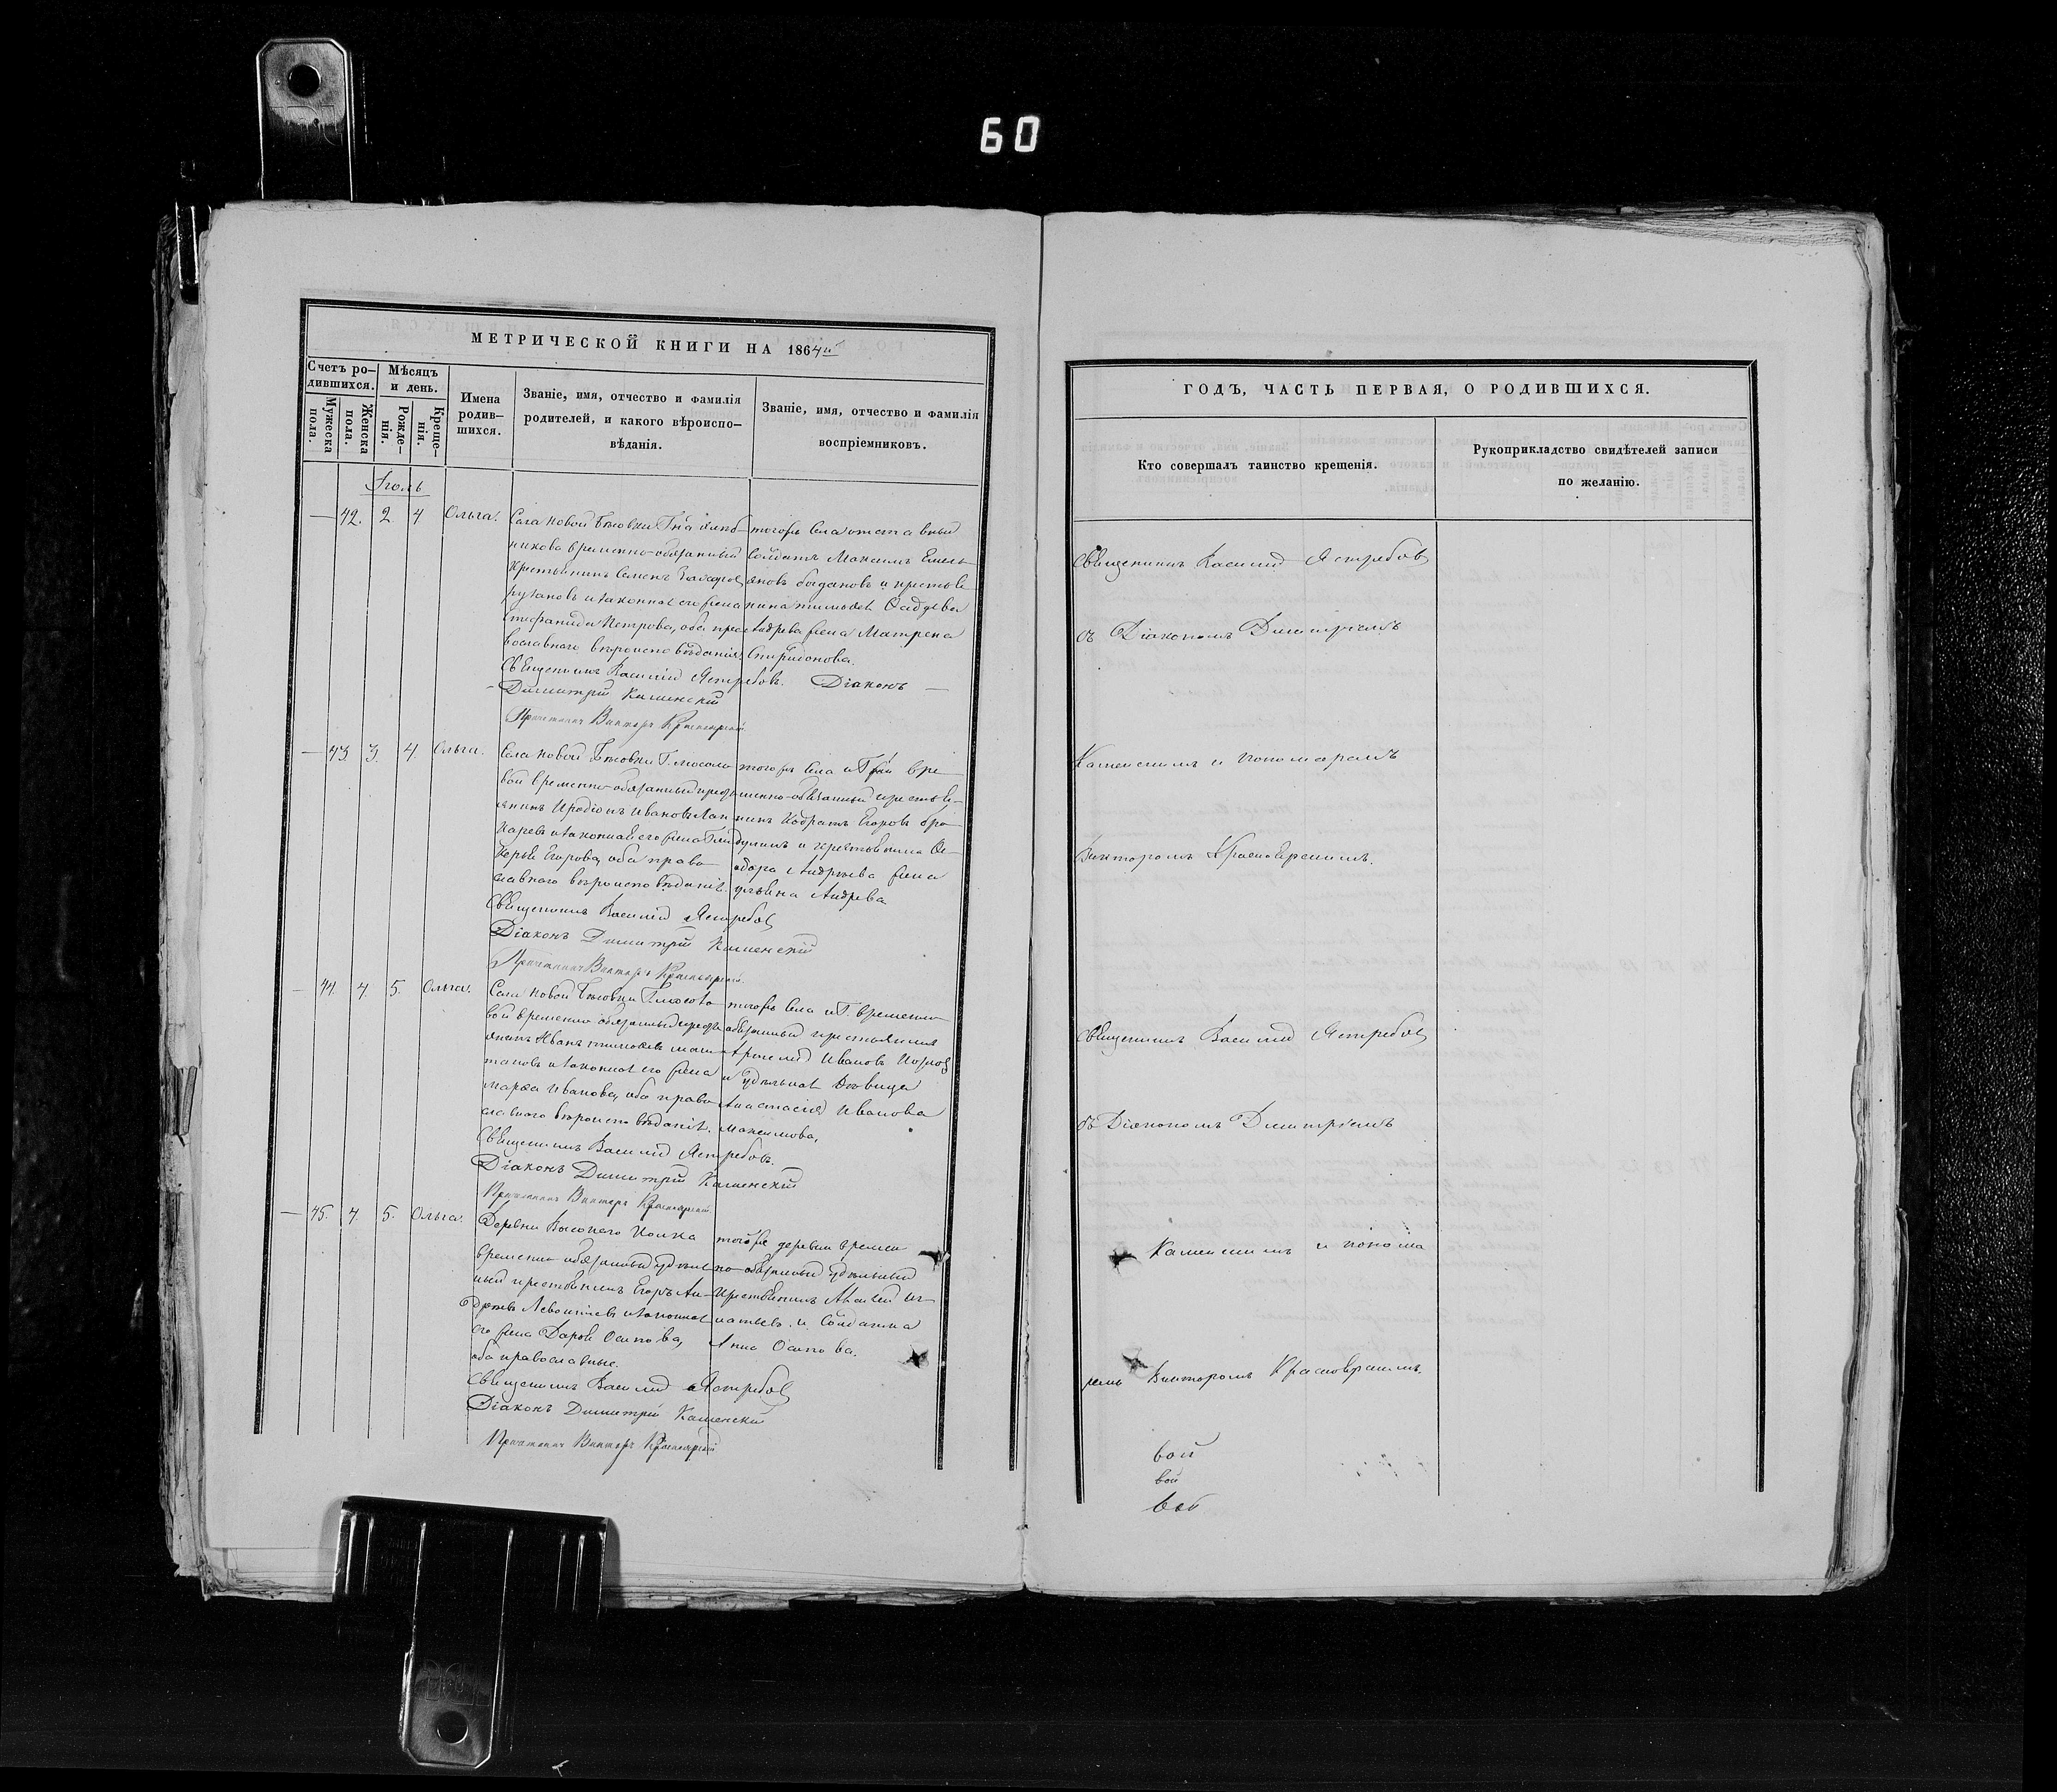 60
МЕТРИЧЕСКОЙ КНИГИ НА 1864й
Счетъ ро-
дившихся.
Мужеска
пола.
Женска
пола.
Мѣсяцъ
и день.
Рожде-
нія.
Креще-
нія.
Имена
родив-
шихся.
Званіе, имя, отчество и фамилія
родителей, и какого вѣроиспо-
вѣданія.
Званіе, имя, отчество и фамилія
воспріемниковъ.
Іюль
— 42. 2 4 Ольга.
Села Новой
никова временно-обязанный
крестьянинъ Семенъ Захаров
и законная его жена
Степанида Петрова, оба пра
вославнаго вѣроисповѣданія
Священникъ Василій Ястребовъ. Діаконъ —
Димитрій Каменскій
Причетникъ Викторъ Красноярскій
тогожъ села отставный
солдатъ Максимъ Емель
яновъ Богдановъ и крестья
нина
Андрева жена Матрена
Спиридонова.
— 43. 3. 4. Ольга.
Села Новой
вой временно-обязанный крест
янинъ Иродіонъ Ивановъ
и законная его жена Гли
керья Егорова, оба право
славнаго вѣроисповѣданія.
Священникъ Василій Ястребов
Діаконъ Димитрій Каменскій
Причетникъ Викторъ Красноярскій.
тогожъ села и вре
менно-обязанный крестья-
нинъ Кодратъ Егоровъ
и крестьянина Ѳе
одора Андрѣева жена
Ульяна Андрева
— 44. 4. 5. Ольга.
Села Новой
вой временно обязанный крест
янинъ Иванъ
и законная его жена
Марѳа Иванова, оба право
славнаго вѣроисповѣданія.
Священникъ Василій Ястребовъ.
Діаконъ Димитрій Каменскій
Причетникъ Викторъ Красноярскій.
тогожъ села и Г. временно
обязанный крестьянинъ
Ивановъ
и удѣльная дѣвица
Анастасія Иванова
Максимова.
— 45. 4. 5. Ольга.
Деревни Высокаго Колка
временно обязанный удѣль
ный крестьянинъ Егоръ Ан-
дрѣевъ Леонтьевъ и законная
его жена Дарья Осипова,
оба православные.
Священникъ Василій Ястребов
Діаконъ Димитрій Каменскій
Причетникъ Викторъ Красноярскій
тойже деревни времен
но обязанный удѣльный
крестьянинъ Алексѣй Иг
натьевъ. и солдатка
Анна Осипова.
ГОДЪ, ЧАСТЬ ПЕРВАЯ, О РОДИВШИХСЯ.
Кто совершалъ таинство крещенія.
Рукоприкладство свидѣтелей записи
по желанію.
Священникъ Василій Ястребов
съ Діакономъ Димитріемъ
Каменскимъ и пономаремъ
Викторомъ Красноярскимъ.
Священникъ Василій Ястребов
съ Діакономъ Димитріемъ
Каменскимъ и понома
ремъ Викторомъ Красноярскимъ.
вой
вой
вой